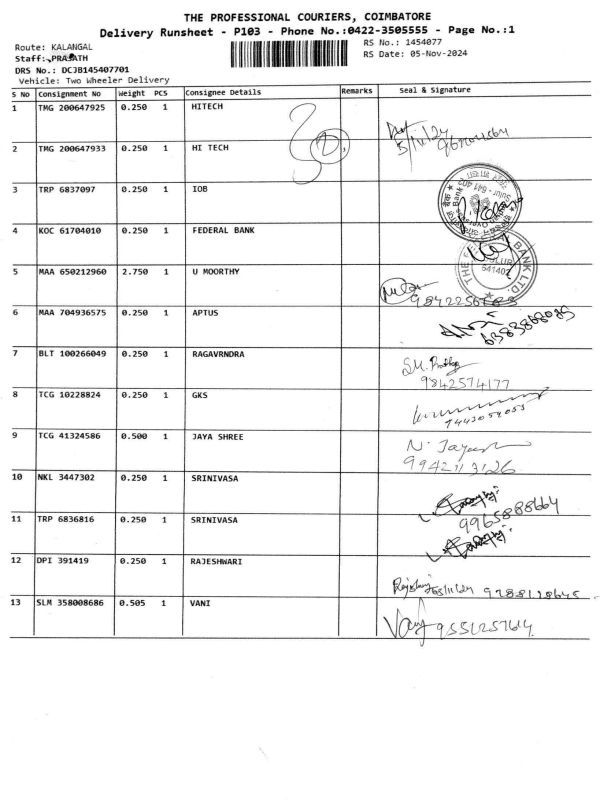 THE PROFESSIONAL COURIERS, COIMBATORE
Delivery Runsheet - P103 - Phone No.:0422-3505555 - Page No.:1
Route: KALANGAL
RS No.: 1454077
Staff: PRASATH
RS Date: 05-Nov-2024
DRS No.: DCJB145407701
Vehicle: Two Wheeler Delivery
S No Consignment No Weight PCS Consignee Details Remarks Seal & Signature
1 TMG 200647925 0.250 1 HITECH
5/11/24
2 TMG 200647933 0.250 1 HI TECH
3 TRP 6837097 0.250 1 IOB
4 KOC 61704010 0.250 1 FEDERAL BANK
BANK LTD.
641402
5 MAA 650212960 2.750 1 U MOORTHY
6 MAA 704936575 0.250 1 APTUS
6383868085
7 BLT 100266049 0.250 1 RAGAVRNDRA
9842574177
8 TCG 10228824 0.250 1 GKS
9443054055
9 TCG 41324586 0.500 1 JAYA SHREE
N. Jayashree
9942113126
10 NKL 3447302 0.250 1 SRINIVASA
9965888664
11 TRP 6836816 0.250 1 SRINIVASA
12 DPI 391419 0.250 1 RAJESHWARI
05/11/24 9788118645
13 SLM 358008686 0.505 1 VANI
9551257614